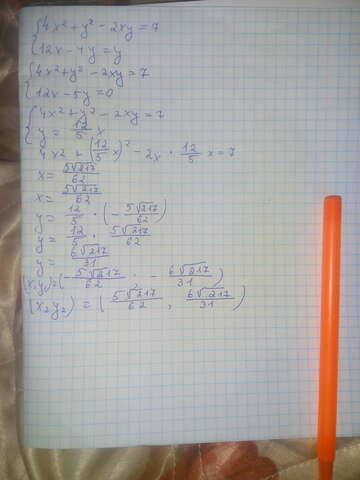 {4x² + y² - 2xy = 7
{12x - 4y = y
{4x² + y² - 2xy = 7
{12x - 5y = 0
{4x² + y² - 2xy = 7
{y = 12/5 x
4x2 + (12/5 x)² - 2x · 12/5 x = 7
x = 5√217/62
x = 5√217/62
y = 12/5 · (- 5√217/62)
y = 12/5 · 5√217/62
y = 6√217/31
(x₁y₁) = (- 5√217/62 · - 6√217/31)
(x₂y₂) = (5√217/62, 6√217/31)